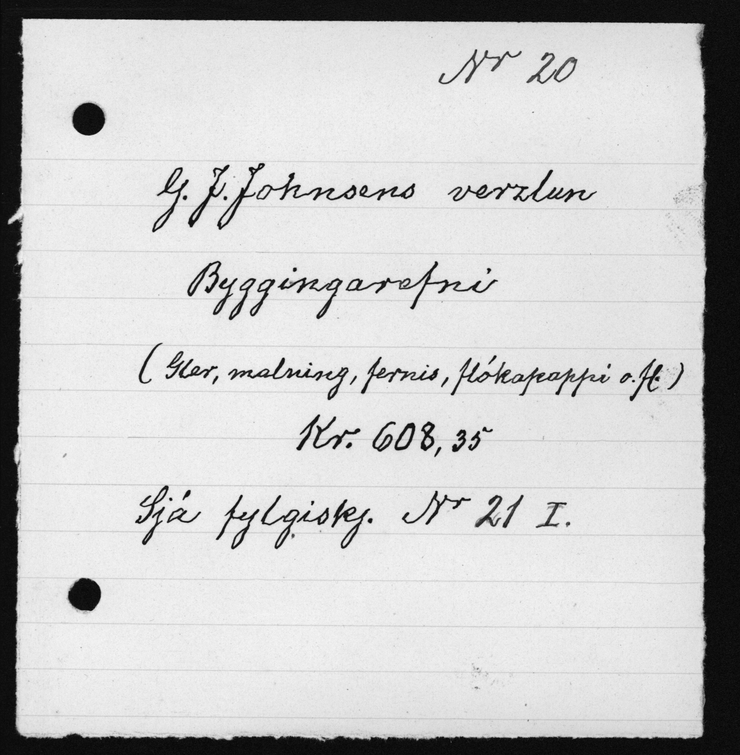 Nr 20
G. J. Johnsens verzlun
Byggingarefni
(Gler, malning, fernis, flókapappi o.fl.)
Kr. 608,35
Sjá fylgiskj. Nr 21 I.